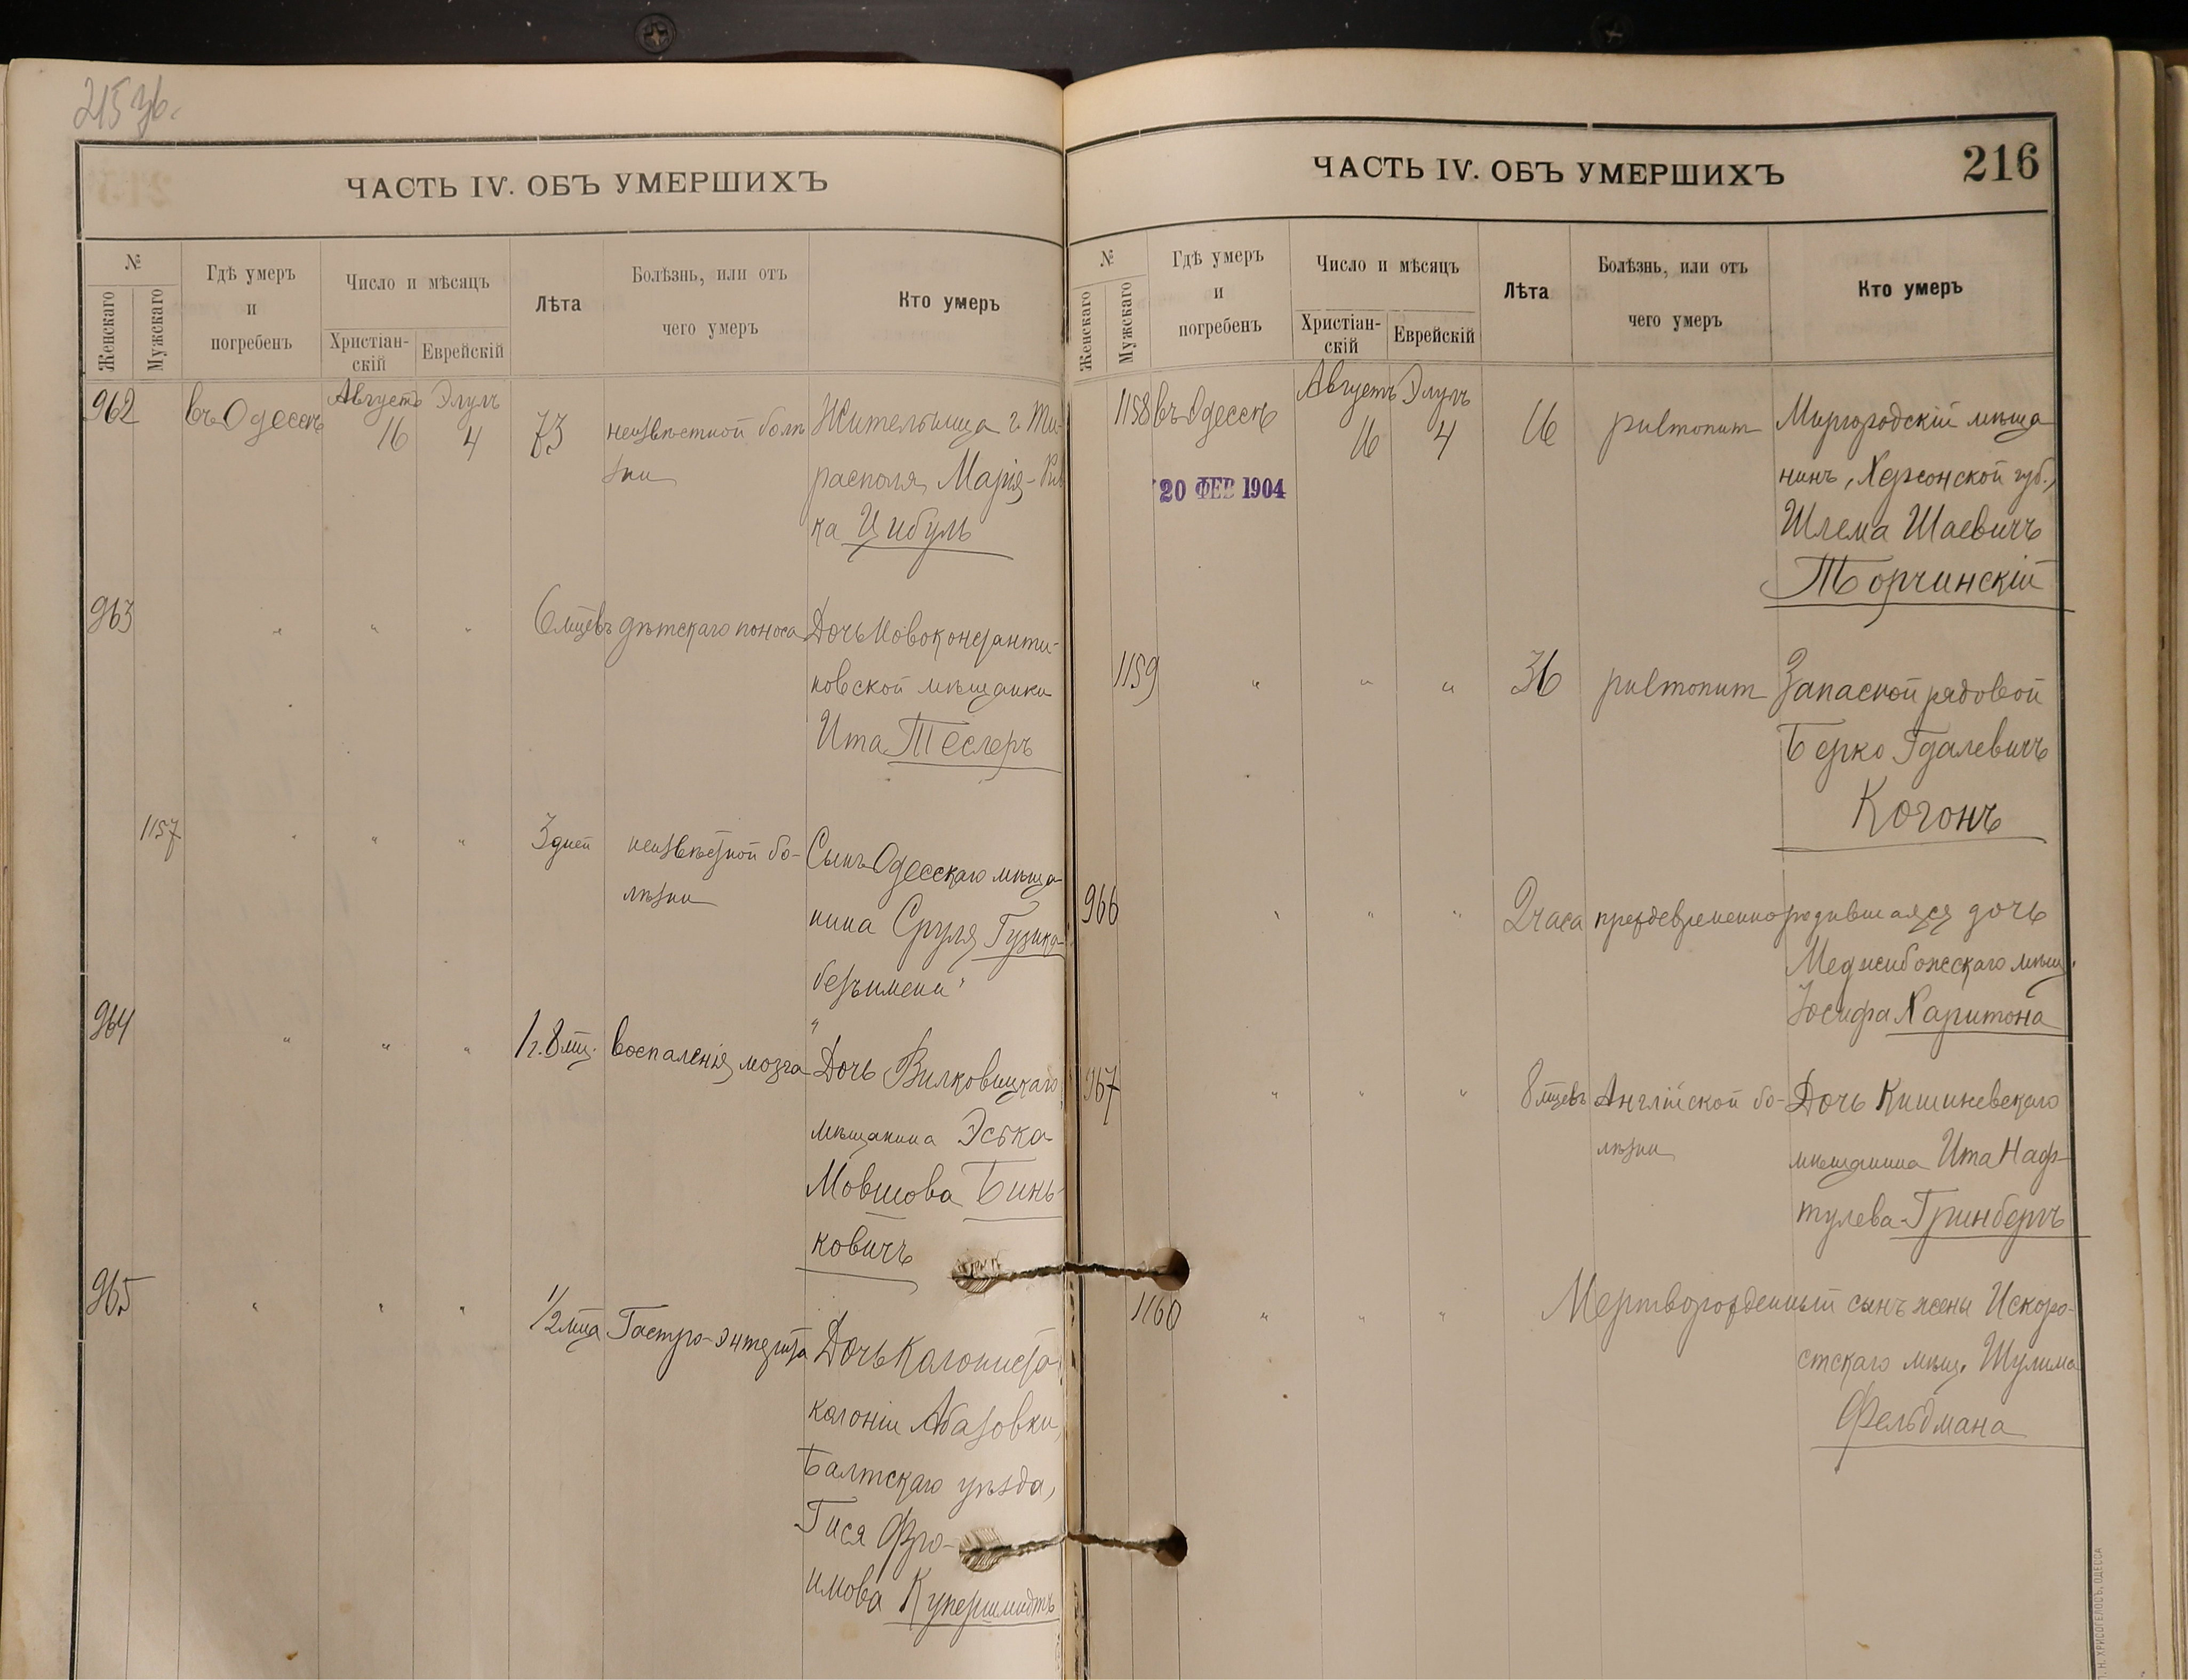 215 зв.
ЧАСТЬ IV. ОБЪ УМЕРШИХЪ
№
Женскаго
Мужскаго
Гдѣ умеръ
и
погребенъ
Число и мѣсяцъ
Христіан-
скій
Еврейскій
Лѣта
Болѣзнь, или отъ
чего умеръ
Кто умеръ
962
въ Одессѣ
Августъ
16
Элулъ
4
73
неизвѣстной болѣ
зни
Жительница г. Ти-
располя, Марія-Рив
ка Цибуль
963
" " "
6 мцевъ
дѣтскаго поноса
Дочь Новоконстанти-
новской мѣщанки
Ита Теслеръ
1157
" " "
3 дней
неизвѣстной бо-
лѣзни
Сынъ Одесскаго мѣща-
нина Сруля Гузика
безъ имени
964
" " "
1 г. 8 мц.
воспаленія мозга
Дочь Вилковицкаго
мѣщанина Эська
Мовшова Бинь-
ковичъ
965
" " "
1/2 мца
Гастро-энтерита
Дочь Колониста
колоніи Абазовки,
Балтскаго уѣзда,
Гися Фро-
имова Купершмидтъ
ЧАСТЬ IV. ОБЪ УМЕРШИХЪ
216
№
Женскаго
Мужскаго
Гдѣ умеръ
и
погребенъ
Число и мѣсяцъ
Христіан-
скій
Еврейскій
Лѣта
Болѣзнь, или отъ
чего умеръ
Кто умеръ
1158
въ Одессѣ
Августъ
16
Элулъ
4
16
20 ФЕВ 1904
Миргородскій мѣща
нинъ, Херсонской губ.,
Шлема Шаевичъ
Торчинскій
1159
" " "
36
Запасной рядовой
Берко Гдалевичъ
Когонъ
966
" " "
2 часа
преждевременно родившаяся дочь
Меджибожскаго мѣщ.
Іосифа Харитона
967
" " "
8 мцевъ
Англійской бо-
лѣзни
Дочь Кишиневскаго
мѣщанина Ита Наф-
тулева Гринбергъ
1160
" " "
Мертворожденный сынъ жены Искоро-
стскаго мѣщ. Шулима
Фельдмана
Н. ХРИСОГЕЛОСЪ, ОДЕССА